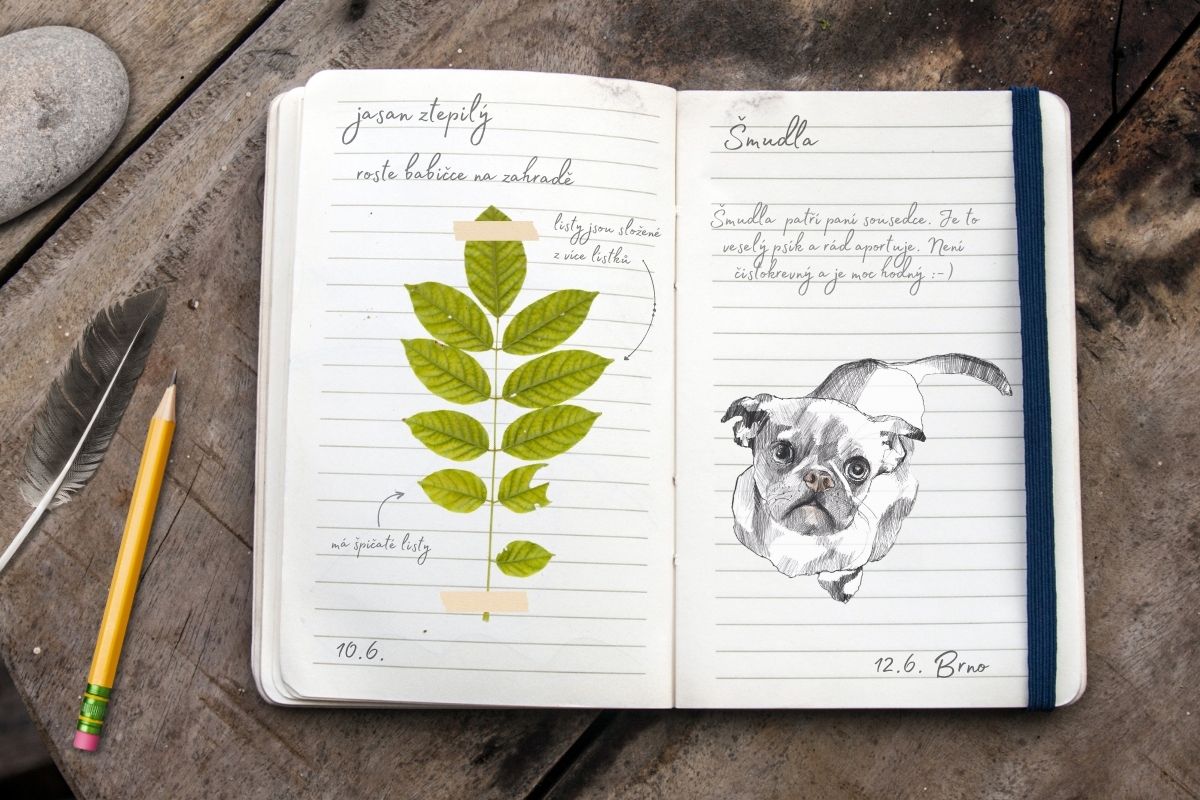 jasan ztepilý
roste babičce na zahradě
listy jsou složené
z více lístků
má špičaté listy
10.6.
Šmudla
Šmudla patří paní sousedce. Je to
veselý psík a rád aportuje. Není
čistokrevný a je moc hodný :-)
12.6. Brno